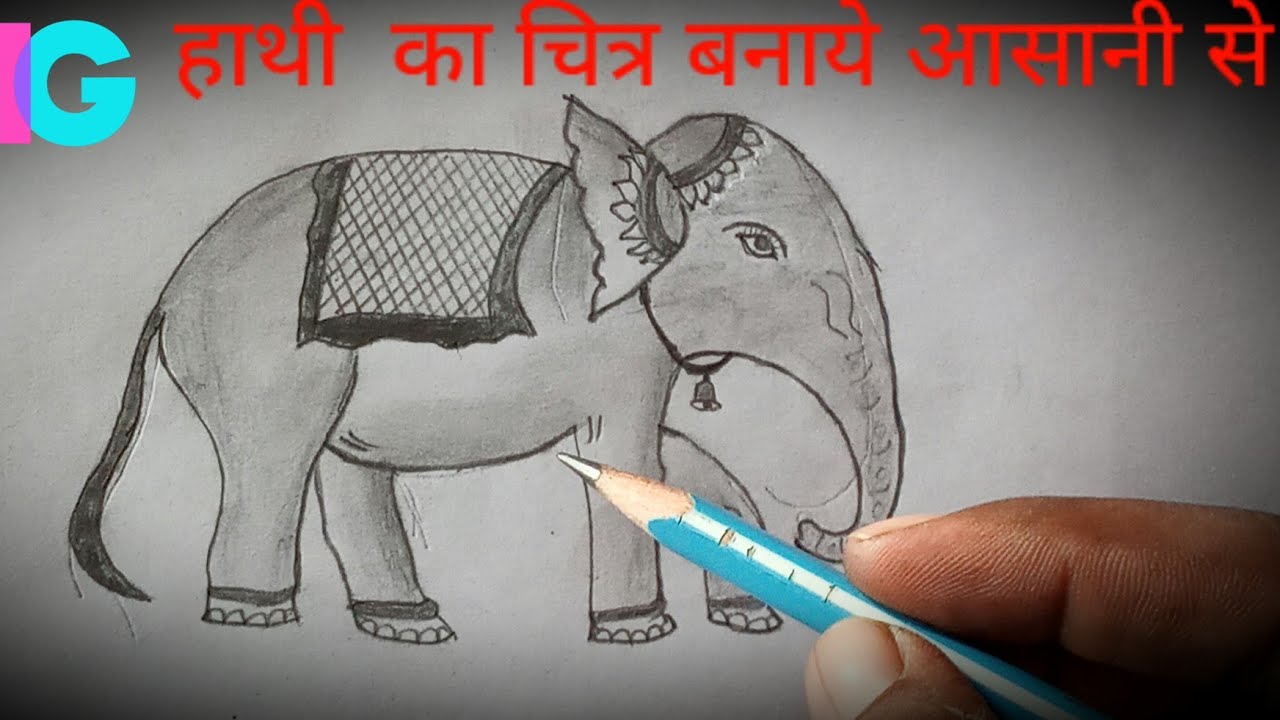 IG हाथी का चित्र बनाये आसानी से